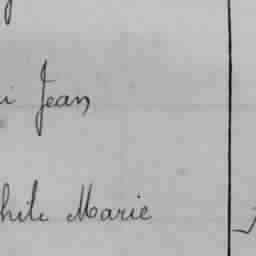 i Jean
hile Marie